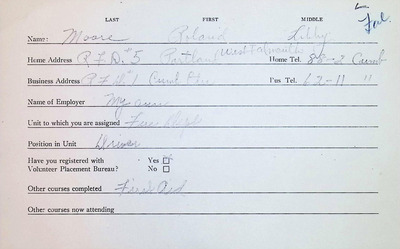 LAST FIRST MIDDLE
Name: Moore Roland Libby
Home Address R.F.D. #5 Portland West Falmouth Home Tel. 88-2 Cumb
Business Address R.F.D. #1 Cumb Bus Tel. 62-11 "
Name of Employer My own
Unit to which you are assigned Fire
Position in Unit Driver
Have you registered with Yes
Volunteer Placement Bureau? No
Other courses completed First Aid
Other courses now attending